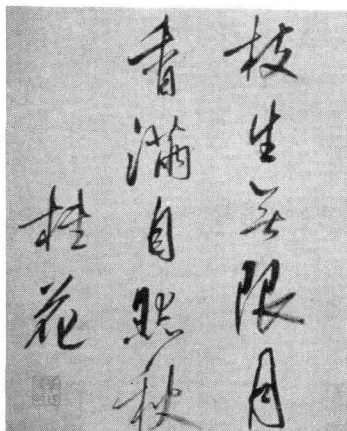 枝生無限月
香滿自然秋
桂花